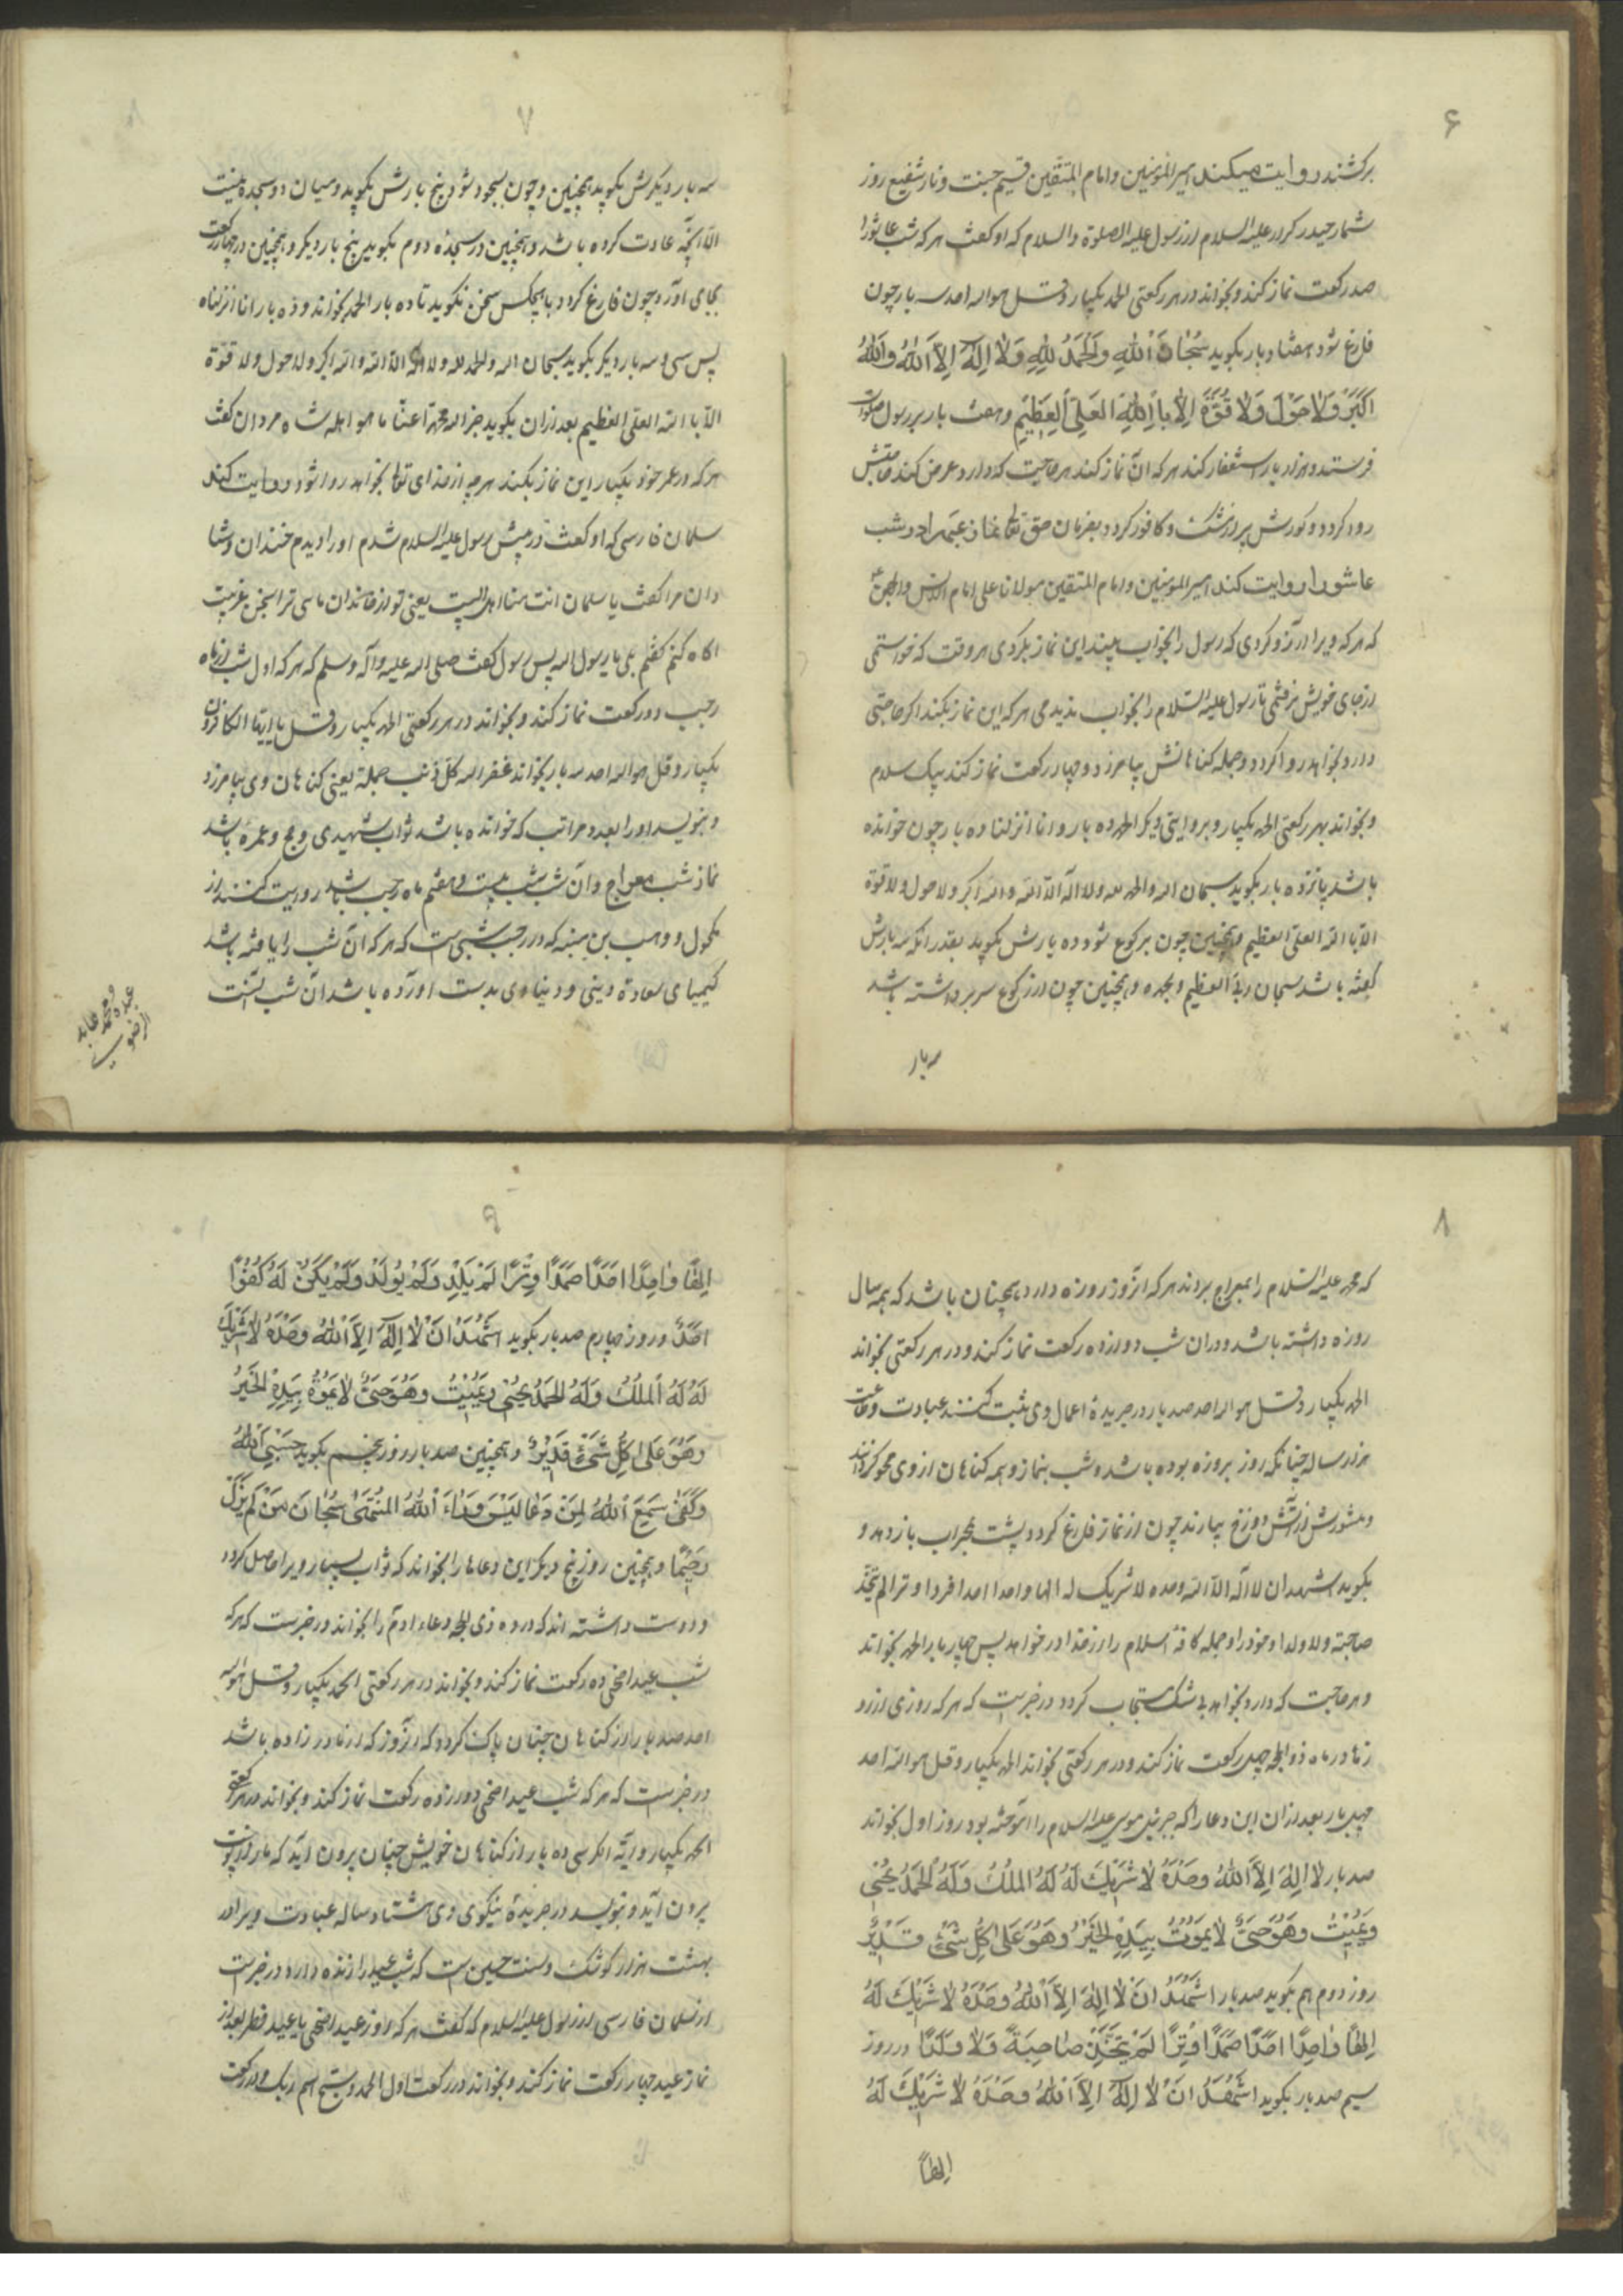 ۶
برکشند روایت میکند امیرالمؤمنین و امام المتقین قسیم جنت و نار شفیع روز
شمار حیدر کرار علیه السلام از رسول علیه الصلوة والسلام که او کفت هر که شب عاشورا
صد رکعت نماز کند و بخواند در هر رکعتی الحمد یکبار و قل هو الله احد سه بار چون
فارغ شود هفتاد بار بکوید سُبْحَانَ اللهِ وَالْحَمْدُ لِلّهِ وَلَا اِلٰهَ اِلَّا اللهُ وَاللهُ
اَکْبَرُ وَلَا حَوْلَ وَلَا قُوَّةَ اِلَّا بِاللهِ الْعَلِیِّ الْعَظِیْمِ وهفت بار بر رسول صلوات
فرستد و هزار بار استغفار کند هر که آن نماز کند هر حاجت که دارد عرض کند حاجتش
روا کردد و کورش پر از مشک و کافور کردد بفرمان حق تعالی نماز دیکر در شب
عاشورا روایت کند امیرالمومنین و امام المتقین مولانا علی امام الانس والجن
که هر که ویرا آرزو کردی که رسول را بخواب بیند این نماز بکردی هر وقت که خواستمی
از جای خویش نرفتمی تا رسول علیه السلام را بخواب ندیدمی هر که این نماز بکند اکر حاجتی
دارد بخواهد روا کردد و جمله کناهانش بیامرزد و چهار رکعت نماز کند بیک سلام
و بخواند بهر رکعتی الحمد یکبار و بروایتی دیکر الحمد ده بار و انا انزلنا ده بار چون خوانده
باشد پانزده بار بکوید سبحان الله والحمد لله ولا اله الا الله والله اکبر ولا حول ولا قوة
الا بالله العلی العظیم و همچنین چون برکوع شود ده بارش بکوید بقدر آنکه سه بارش
کفته باشد سبحان ربی العظیم وبحمده و همچنین چون از رکوع سر برداشته باشد
سه بار
۷
سه بار دیکرش بکوید همچنین و چون بسجود شود پنج بارش بکوید و میان دو سجده
الا آنچه عادت کرده باشد و همچنین در سجده دوم بکوید پنج بار دیکر و همچنین در چهار رکعت
بجای آورد چون فارغ کردد با هیچکس سخن نکوید تا ده بار الحمد بخواند و ده بار انا انزلناه
پس سی و سه بار دیکر بکوید سبحان الله والحمد لله ولا اله الا الله والله اکبر ولا حول ولا قوة
الا بالله العلی العظیم بعد از آن بکوید جزا الله محمدا عنا ما هو اهله شاه مردان کفت
هر که در عمر خود یکبار این نماز بکند هر چه از خدای تعالی بخواهد روا شود روایت کند
سلمان فارسی که او کفت در پیش رسول علیه السلام شدم او را دیدم خندان و شا
دان مرا کفت یا سلمان انت منا اهل البیت یعنی تو از خاندان مایی ترا سخن غریبت
آکاه کنم کفتم بلی یا رسول الله پس رسول کفت صلی الله علیه وآله وسلم که هر که اول شب از ماه
رجب دو رکعت نماز کند و بخواند در هر رکعتی الحمد یکبار و قل یا ایها الکافرون
یکبار و قل هو الله احد سه بار بخواند غفر الله کل ذنب جملة یعنی کناهان وی بیامرزد
و بنویسد او را بعدد مراتب که خوانده باشد ثواب شهیدی و حج و عمره باشد
نماز شب معراج و آن شب شب بیست و هفتم ماه رجب باشد روایت کنند از
مکحول و وهب بن منبه که در رجب شبی است که هر که آن شب را یافته باشد
کیمیای سعادة دینی و دنیاوی بدست آورده باشد آن شب آنست
۸
که محمد علیه السلام را بمعراج براند هر که آنروز روزه دارد همچنان باشد که همه سال
روزه داشته باشد و در آن شب دوازده رکعت نماز کند و در هر رکعتی بخواند
الحمد یکبار و قل هو الله احد صد بار در جریدة اعمال وی ثبت کنند عبادت و طاعت
هزار ساله چنانکه روز بروزه بوده باشد و شب بنماز و همه کناهان از وی محو کردانند
و منشورش از آتش دوزخ بیارند چون از نماز فارغ کردد پشت بمحراب باز دهد و
بکوید اشهد ان لا اله الا الله وحده لا شریک له الها واحدا احدا فردا وترا لم یتخذ
صاحبة ولا ولدا و خود را و جمله کافة اسلام را از خدا در خواهد پس چهار بار الحمد بخواند
و هر حاجت که دارد بخواهد بی شک مستجاب کردد در خبرست که هر که روزی از رو
زها در ماه ذوالحجه چهل رکعت نماز کند و در هر رکعتی بخواند الحمد یکبار و قل هو الله احد
چهل بار بعد از آن این دعا را که جبرئیل موسی علیه السلام را آموخته بود روز اول بخواند
صد بار لَا اِلٰهَ اِلَّا اللهُ وَحْدَهُ لَا شَرِیْكَ لَهُ لَهُ الْمُلْكُ وَلَهُ الْحَمْدُ یُحْیِیْ
وَیُمِیْتُ وَهُوَ حَیٌّ لَا یَمُوْتُ بِیَدِهِ الْخَیْرُ وَهُوَ عَلٰی کُلِّ شَیْءٍ قَدِیْرٌ
روز دوم هم بکوید صد بار اَشْهَدُ اَنْ لَا اِلٰهَ اِلَّا اللهُ وَحْدَهُ لَا شَرِیْكَ لَهُ
اِلٰهًا وَاحِدًا اَحَدًا صَمَدًا وِتْرًا لَمْ یَتَّخِذْ صَاحِبَةً وَلَا وَلَدًا در روز
سیم صد بار بکوید اَشْهَدُ اَنْ لَا اِلٰهَ اِلَّا اللهُ وَحْدَهُ لَا شَرِیْكَ لَهُ
اِلٰهًا
۹
اِلٰهًا وَاحِدًا اَحَدًا صَمَدًا وِتْرًا لَمْ یَلِدْ وَلَمْ یُوْلَدْ وَلَمْ یَکُنْ لَهُ کُفُوًا
اَحَدٌ و روز چهارم صد بار بکوید اَشْهَدُ اَنْ لَا اِلٰهَ اِلَّا اللهُ وَحْدَهُ لَا شَرِیْكَ
لَهُ لَهُ الْمُلْكُ وَلَهُ الْحَمْدُ یُحْیِیْ وَیُمِیْتُ وَهُوَ حَیٌّ لَا یَمُوْتُ بِیَدِهِ الْخَیْرُ
وَهُوَ عَلٰی کُلِّ شَیْءٍ قَدِیْرٌ و همچنین صد بار روز پنجم بکوید حَسْبِیَ اللهُ
وَکَفٰی سَمِعَ اللهُ لِمَنْ دَعَا لَیْسَ وَرَاءَ اللهِ الْمُنْتَهٰی سُبْحَانَ مَنْ لَمْ یَزَلْ
رَحِیْمًا و همچنین روز پنج دیکر این دعاها را بخواند که ثواب بسیار ویرا حاصل کردد
و دوست داشته اند که در ده ذی الحجه دعاء آدم را بخوانند در خبرست که هر که
شب عید اضحی ده رکعت نماز کند و بخواند در هر رکعتی الحمد یکبار و قل هو الله
احد صد بار از کناهان چنان پاک کردد که آنروز که از مادر زاده باشد
در خبرست که هر که شب عید اضحی دوازده رکعت نماز کند و بخواند در هر رکعتی
الحمد یکبار و آیة الکرسی ده بار از کناهان خویش چنان برون آید که مار از پوست
برون آید و بنویسد در جریدة نیکوی وی هشتاد ساله عبادت ویرا در
بهشت هزار کوشک و سنت حسین است که شب عید را زنده دارد در خبرست
از سلمان فارسی از رسول علیه السلام که کفت هر که روز عید اضحی یا عید فطر بعد از
نماز عید چهار رکعت نماز کند و بخواند در رکعت اول الحمد و سبح اسم ربک و در رکعت